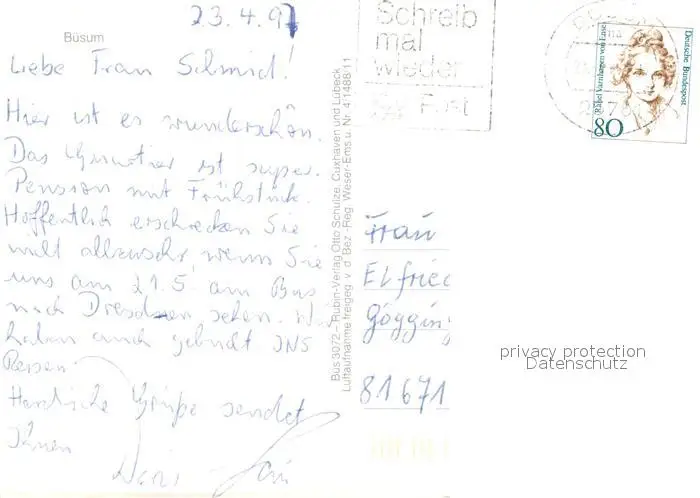 23.4.97
Büsum
Liebe Frau Schmid!
Hier ist es wunderschön.
Das Quartier ist super.
Pension mit Frühstück.
Hoffentlich erschrecken Sie
nicht allzusehr wenn Sie
uns am 21.5. am Bus
nach Dresden sehen. Wir
haben auch gebucht INS
Reisen.
Herzliche Grüße sendet
Ihnen
Schreib
mal
wieder
Post
Rahel Varnhagen von Ense
Deutsche Bundespost
80
Büs 3072 – Rubin-Verlag Otto Schulze, Cuxhaven und Lübeck
Luftaufnahme freigeg. v. d. Bez.-Reg. Weser-Ems u. Nr. 4/1488/11
Frau
Elfried
Gögging
81671
privacy protection
Datenschutz